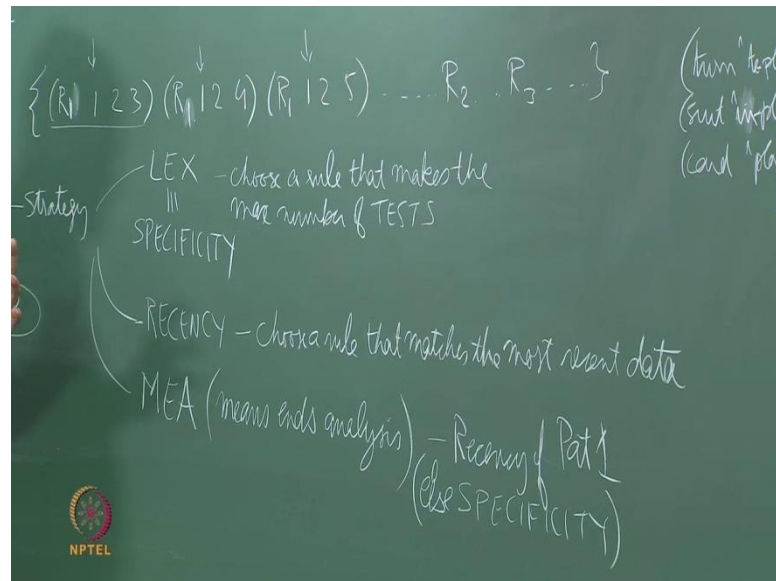 {(R1 1 2 3) (R1 1 2 4) (R1 1 2 5) ..... R2 .. R3 ...}
(turn ^
(suit ^
(card ^
-Strategy
LEX - choose a rule that makes the
max number of TESTS
|||
SPECIFICITY
RECENCY - choose a rule that matches the most recent data
MEA (means ends analysis) - Recency of Pat 1
(else SPECIFICITY)
NPTEL